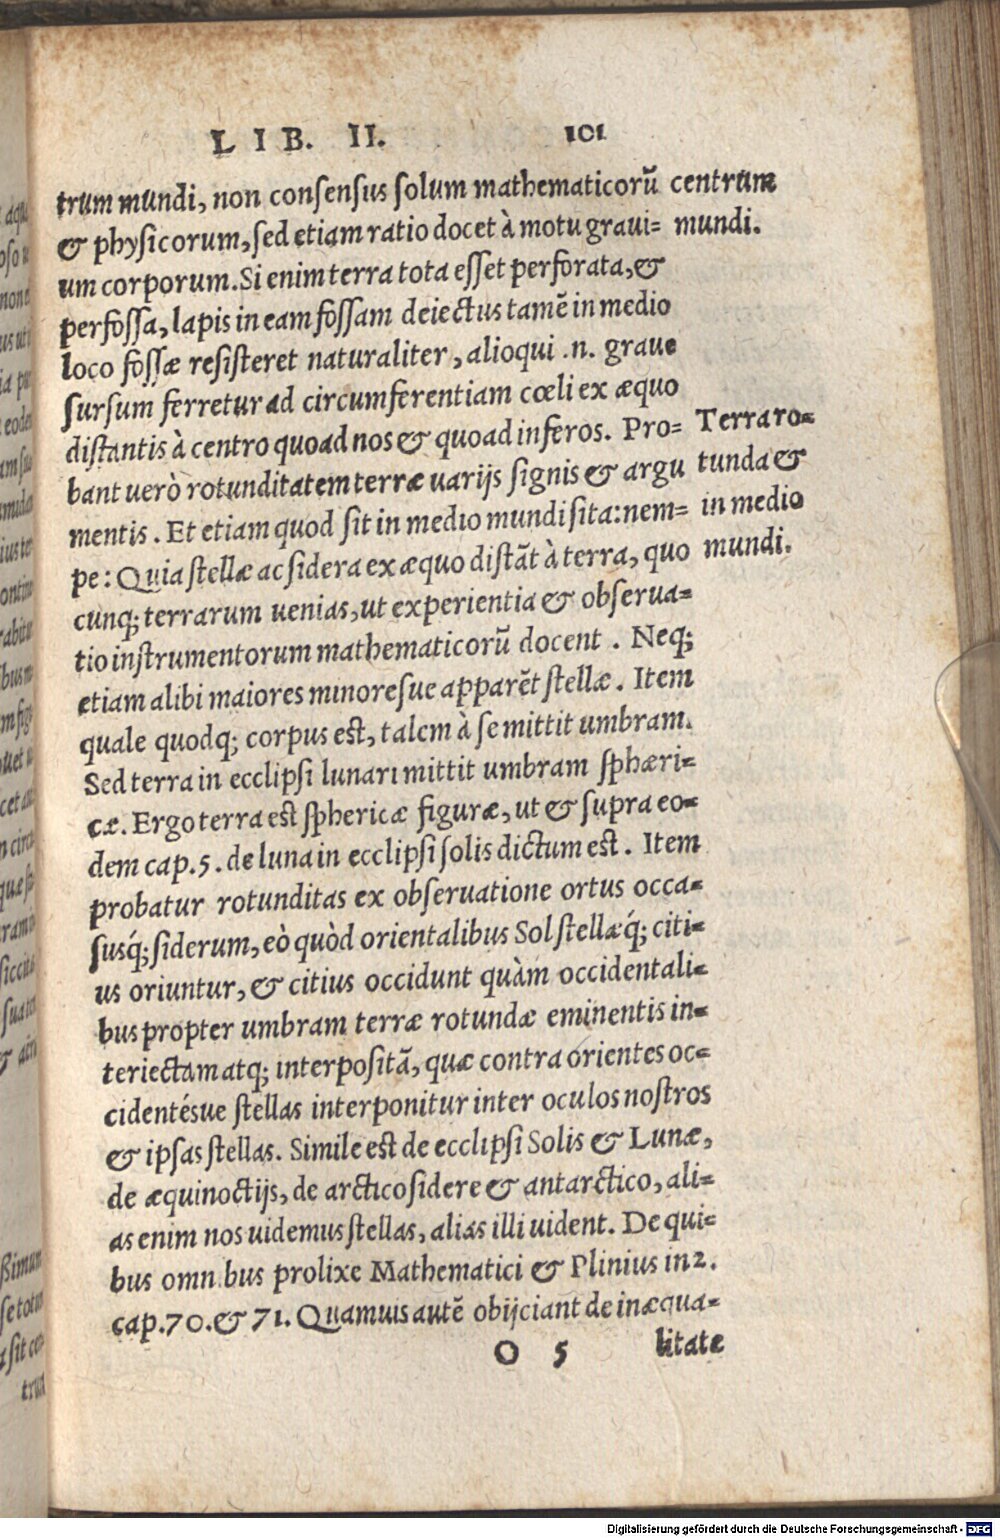 LIB. II. 101
trum mundi, non consensus solum mathematicorũ
& physicorum, sed etiam ratio docet à motu graui=
um corporum. Si enim terra tota esset perforata, &
perfossa, lapis in eam fossam deiectus tamẽ in medio
loco fossæ resisteret naturaliter, alioqui .n. graue
sursum ferretur ad circumferentiam cœli ex æquo
distantis à centro quoad nos & quoad inferos. Pro=
bant uerò rotunditatem terræ uarijs signis & argu
mentis. Et etiam quod sit in medio mundi sita: nem=
pe: Quia stellæ ac sidera ex æquo distãt à terra, quo
cunq; terrarum uenias, ut experientia & obserua=
tio instrumentorum mathematicorũ docent. Neq;
etiam alibi maiores minoresue apparẽt stellæ. Item
quale quodq; corpus est, talem à se mittit umbram.
Sed terra in ecclipsi lunari mittit umbram sphæri=
cæ. Ergo terra est sphericæ figuræ, ut & supra eo=
dem cap. 5. de luna in ecclipsi solis dictum est. Item
probatur rotunditas ex obseruatione ortus occa=
susq́; siderum, eò quòd orientalibus Sol stellæq́; citi=
us oriuntur, & citius occidunt quàm occidentali=
bus propter umbram terræ rotundæ eminentis in=
teriectam atq; interpositã, quæ contra orientes oc=
cidentésue stellas interponitur inter oculos nostros
& ipsas stellas. Simile est de ecclipsi Solis & Lunæ,
de æquinoctijs, de arctico sidere & antarctico, ali=
as enim nos uidemus stellas, alias illi uident. De qui=
bus omn bus prolixe Mathematici & Plinius in 2.
cap. 70. & 71. Quamuis autẽ obijciant de inæqua=
O 5 litate
centrum
mundi.
Terra ro=
tunda &
in medio
mundi.
Digitalisierung gefördert durch die Deutsche Forschungsgemeinschaft - DFG